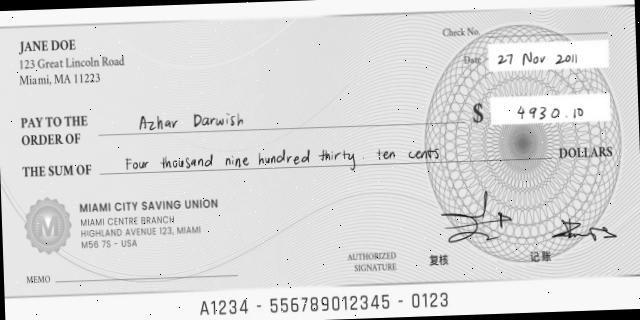 JANE DOE
123 Great Lincoln Road
Miami, MA 11223
Check No.
Date 27 Nov 2011
PAY TO THE
ORDER OF Azhar Darwish
$ 4930.10
THE SUM OF Four thousand nine hundred thirty. ten cents DOLLARS
MIAMI CITY SAVING UNION
MIAMI CENTRE BRANCH
HIGHLAND AVENUE 123, MIAMI
M56 7S - USA
M
MEMO
AUTHORIZED
SIGNATURE
复核
记账
A1234 - 556789012345 - 0123